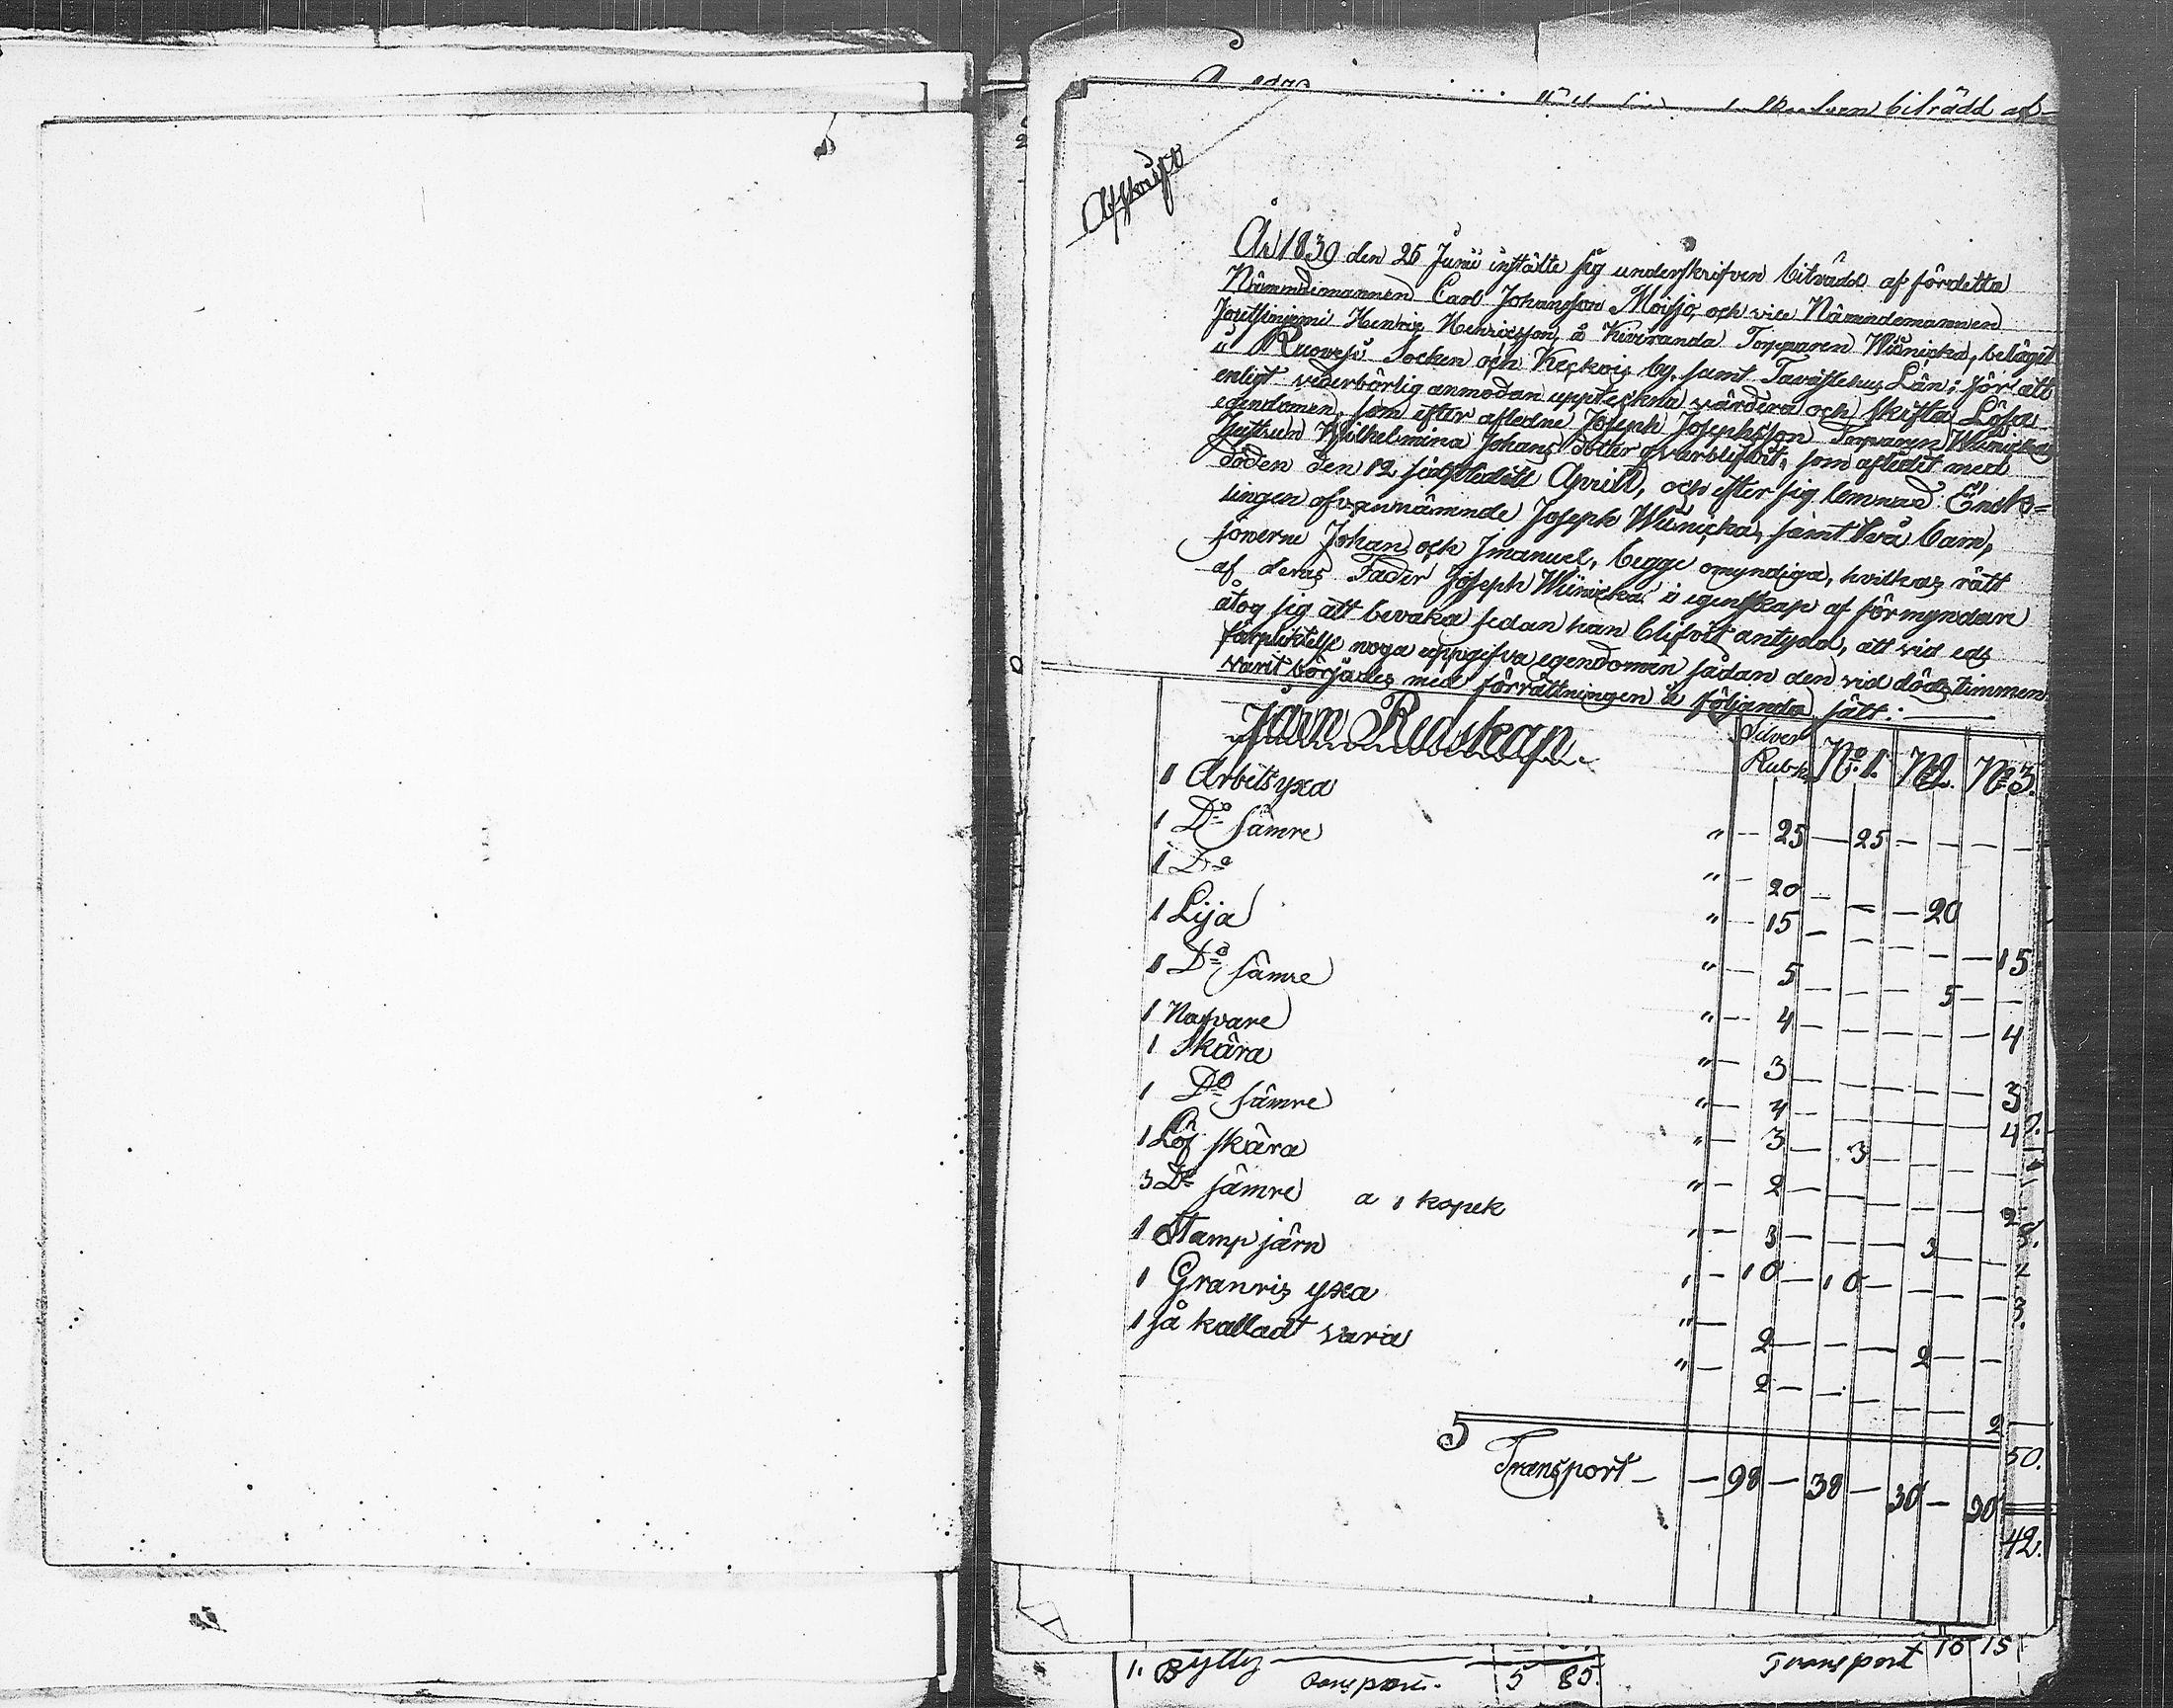 biträdd af
Afskrift
År 1839 den 25 Junii instälte sig underskrifven biträdd af fördetta
Nämndemannen Carl Johansson Moisjo, och vice Nämndemannen
Henric Henricsson å Kiviranda Torpparen Wiinicka, belägit
i Ruovesi Socken och Keckois by, samt Tavastehus Län; för att
enligt vederbörlig anmodan uppteckna värdera och skifta Lösa
egendomen, som efter aflledne Joseph Josephsson Torparen Wiinickas
Hustrun Wilhelmina Johans dotter qvarblifvit, som afledit med
döden den 12 sidstledne Aprill, och efter sig lemnad Enck-
lingen ofvannämnde Joseph Wiinicka, samt två barn,
sönerne Johan och Jmanuel, begge omyndiga, hvilkas rätt
af deras Fader Joseph Wiinicka i egenskap af förmyndare
åtog sig att bevaka sedan han blifvit antydd, att vid eds
förpliktelse noga uppgifva egendomen sådan den vid döds timmen
varit börjades med förrättningen å följande sätt:
Järn Redskap
Silver Rub k. No 1. No 2. No 3.
1 Arbetsyxa " — 25 — 25 — — — —
1 Do sämre " — 20 — — — 20
1 Do " — 15 — — — — — 15
1 Lija " — 5 — — — 5 — —
1 Do sämre " — 4 — — — — — 4
1 Nafvare " — 3 — — — — — 3
1 Skära " — 4 — — — — — 4
1 Do sämre " — 3 — 3 — — — —
1 Löf skära " — 2 — — — — — 2
3 Do sämre a 1 kopek " — 3 — — — 3 — —
1 Stamp järn " — 10 — 10 — — — —
1 Granris yxa " — 2 — — — 2 — —
1 så kalladt vara " — 2 — — — — — 2
Transport — — 98 — 38 — 30 — 30
50.
42.
1. Bytty
Transport. 5 85.
Transport 10 15